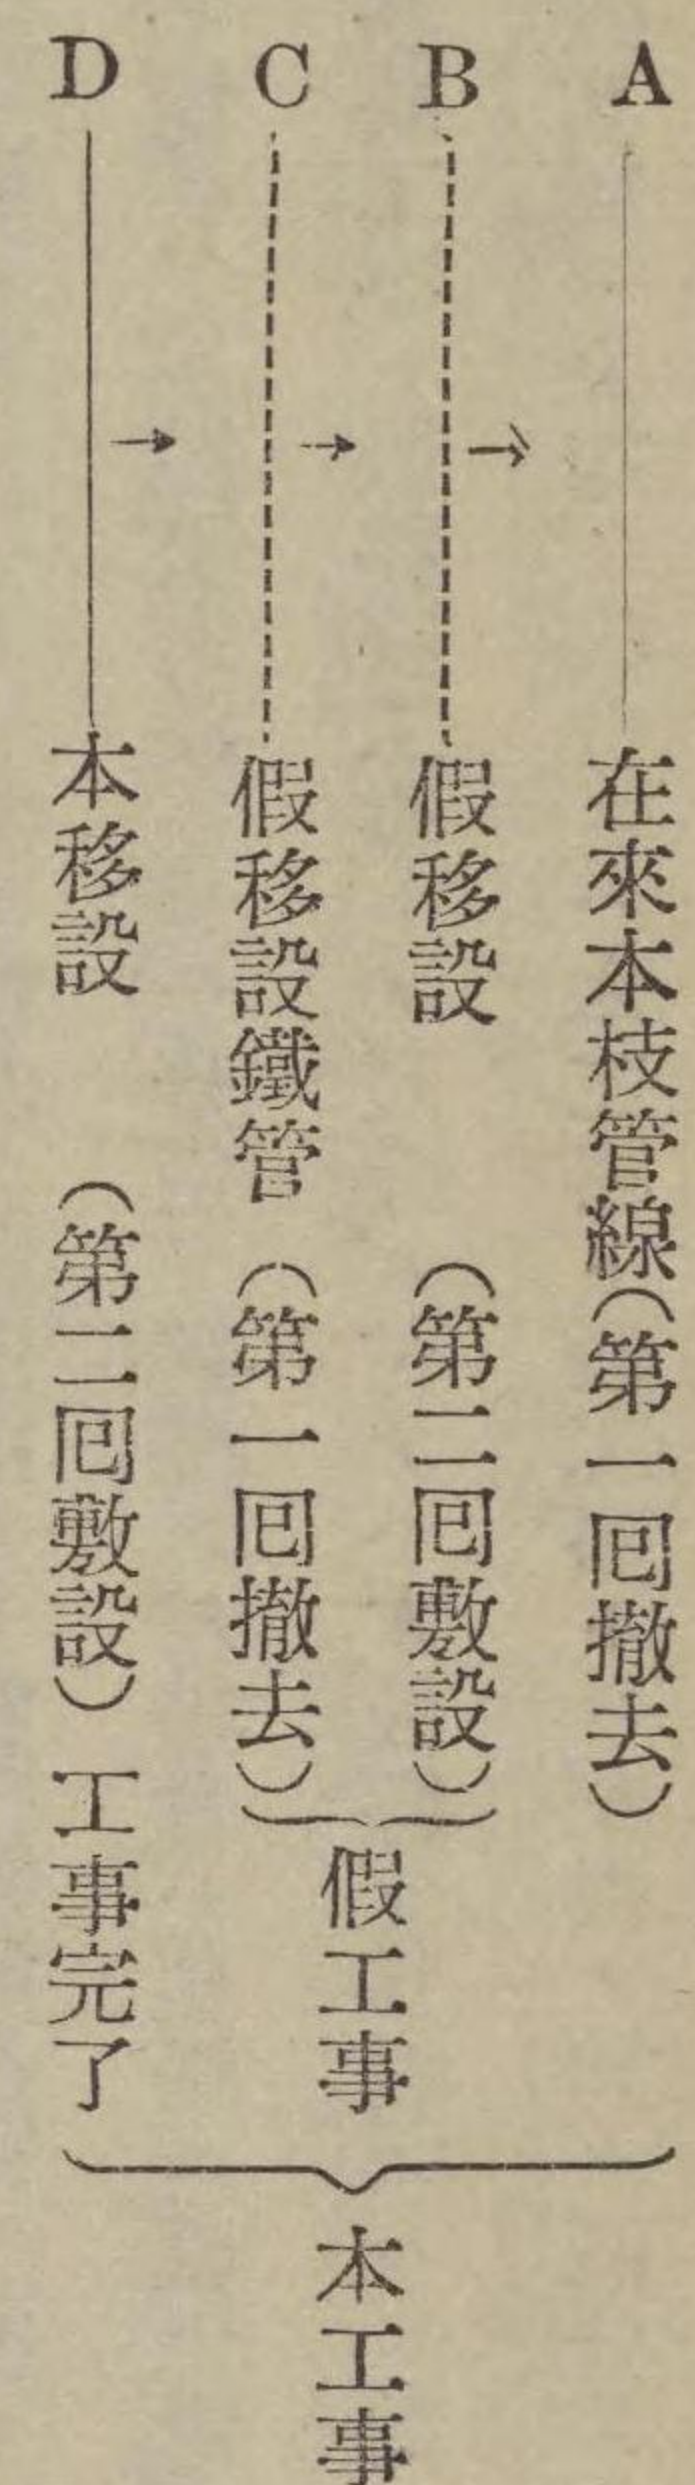 A 在來本枝管線(第一囘撤去)
B 假移設 (第二囘敷設)
C 假移設鐵管 (第一囘撤去)
假工事
D 本移設 (第二囘敷設) 工事完了
本工事